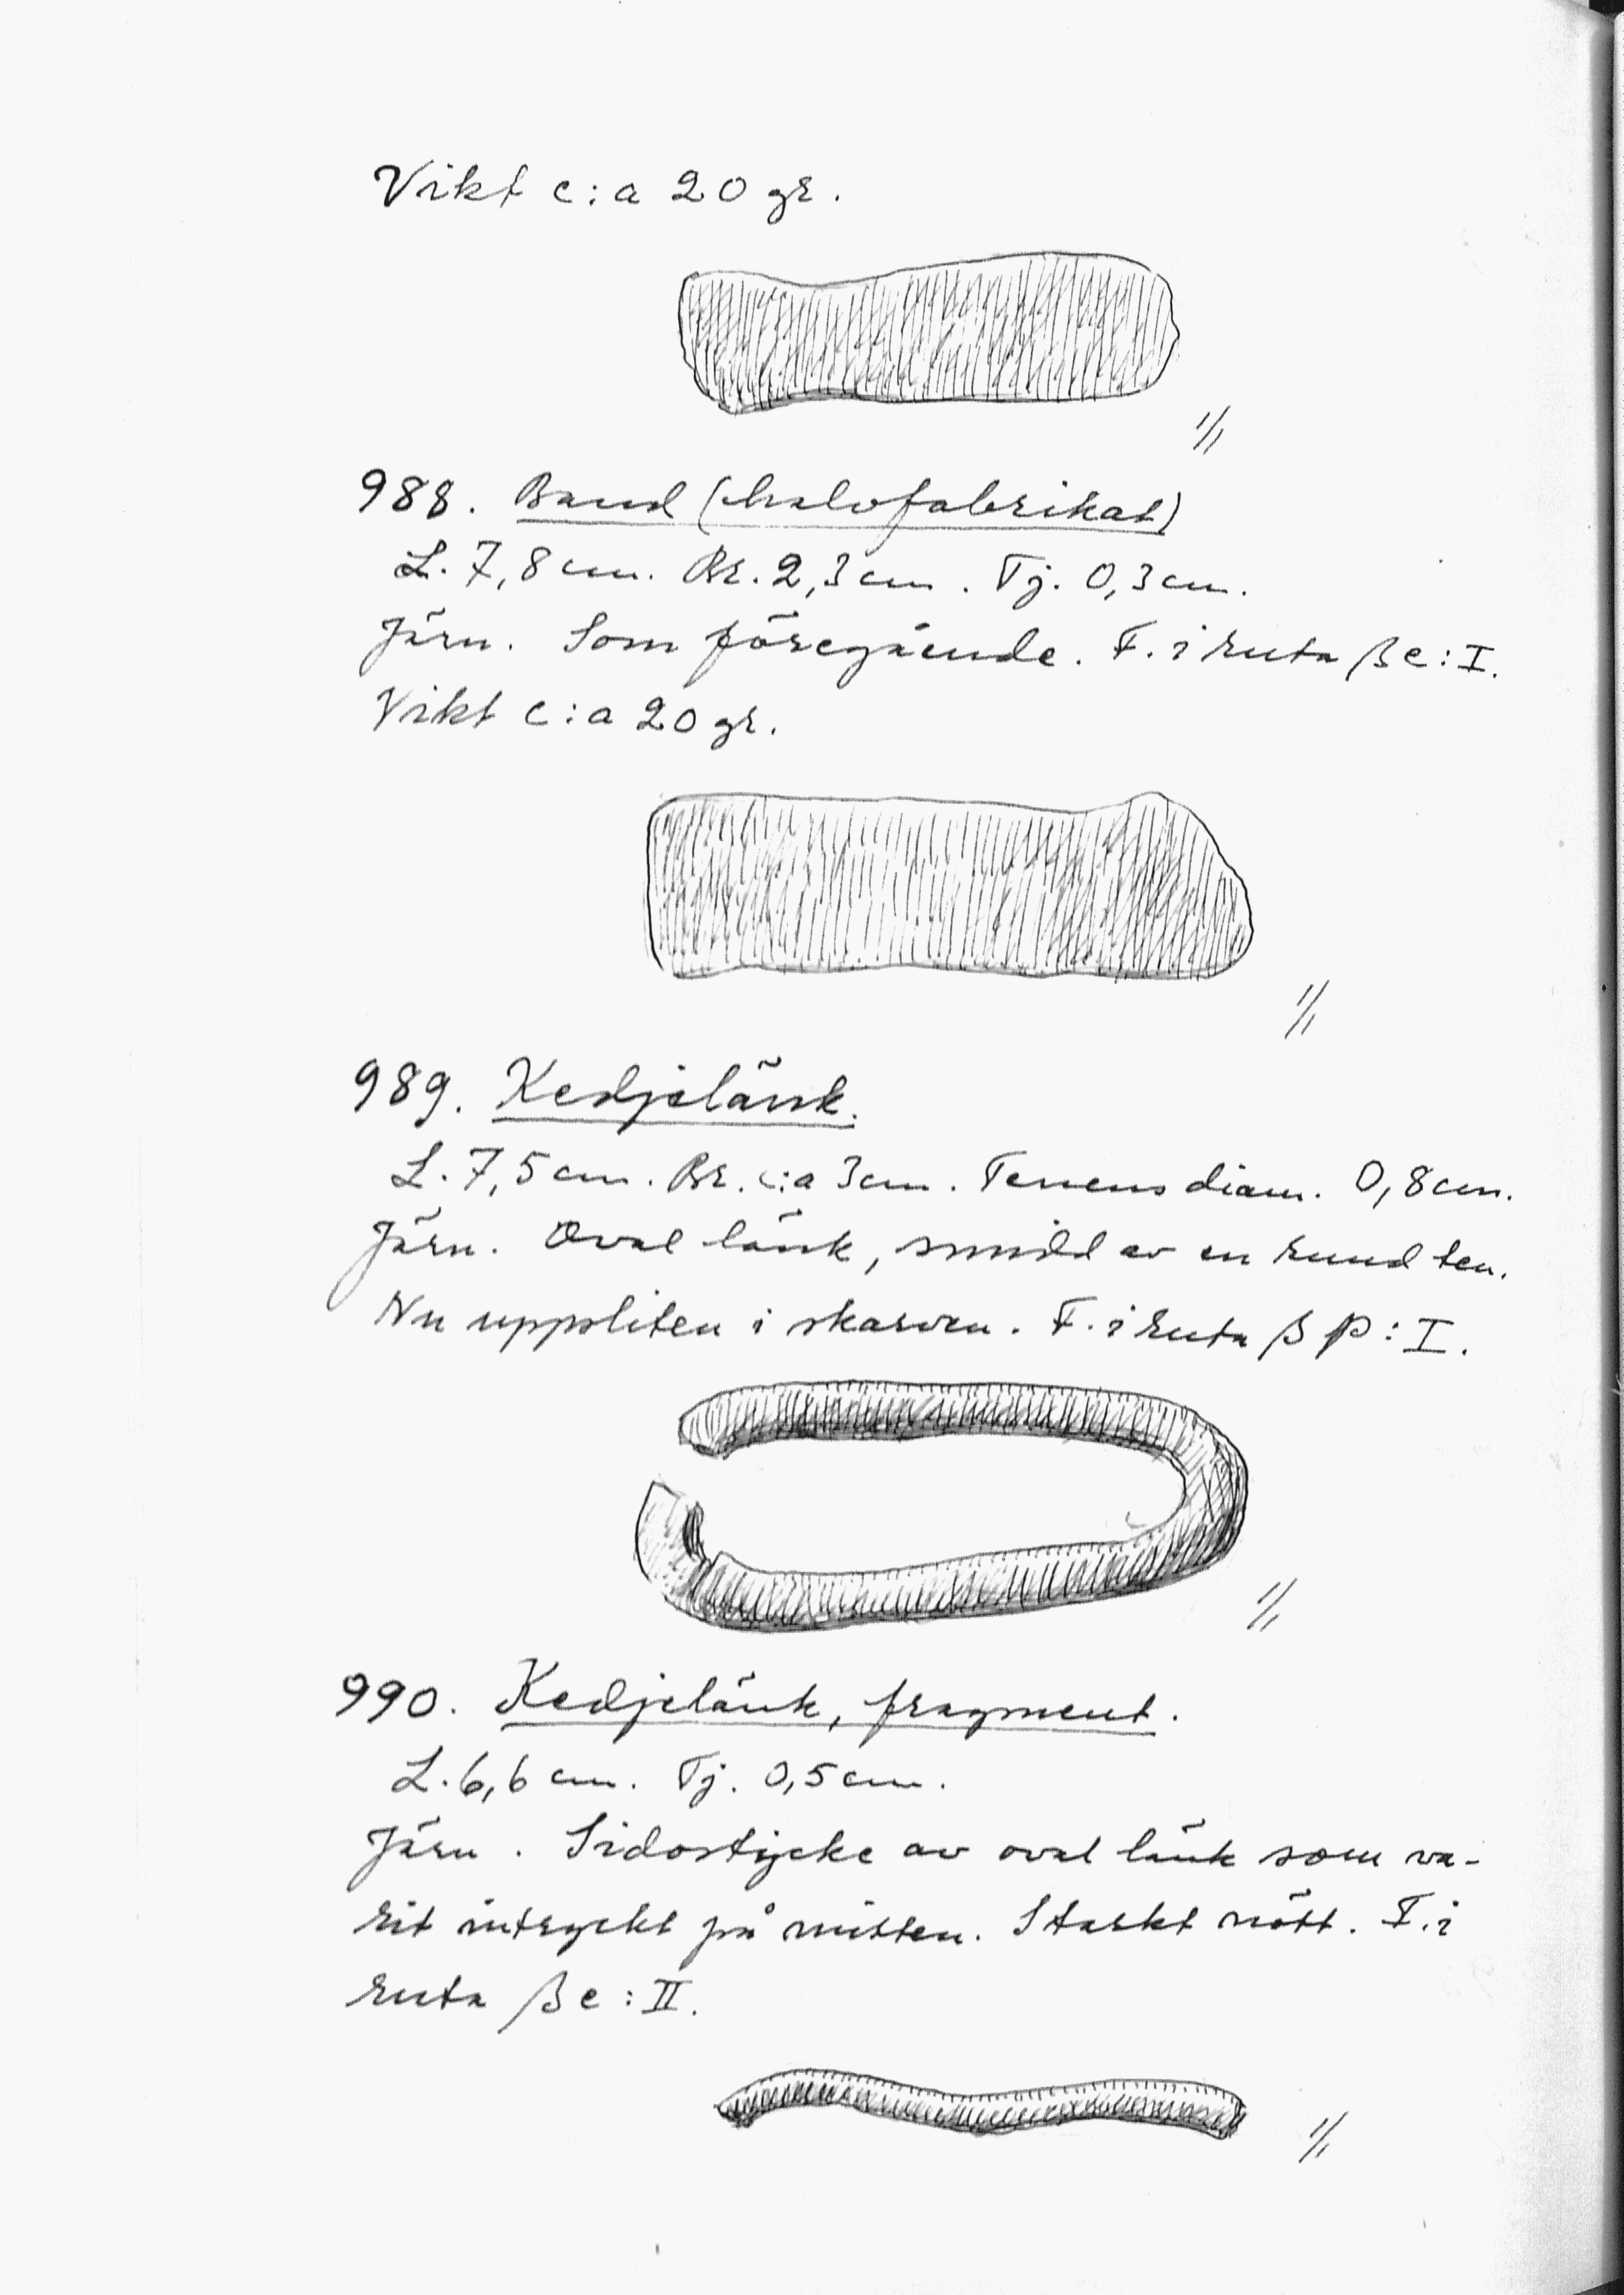 Vikt c:a 20 gr.
1/1
988. Band (halvfabrikat)
L. 7,8 cm. Br. 2,3 cm. Tj. 0,3 cm.
Järn. Som föregående. F. i ruta β e:I.
Vikt c:a 20 gr.
1/1
989. Kedjelänk.
L. 7,5 cm. Br. c:a 3 cm. Tenens diam. 0,8 cm.
Järn. Oval länk, smidd av en rund ten.
Nu uppsliten i skarven. F. i ruta β p:I.
1/1
990. Kedjelänk, fragment.
L. 6,6 cm. Tj. 0,5 cm.
Järn. Sidostycke av oval länk som va-
rit intryckt på mitten. Starkt nött. F. i
ruta β e:II.
1/1